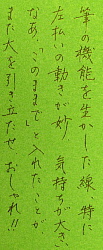 筆の機能を生かした線 特に
左払いの動きが妙 気持ちが大きい
なあ。「このままで」と入れたことが
また大を引き立たせ おしゃれ!!